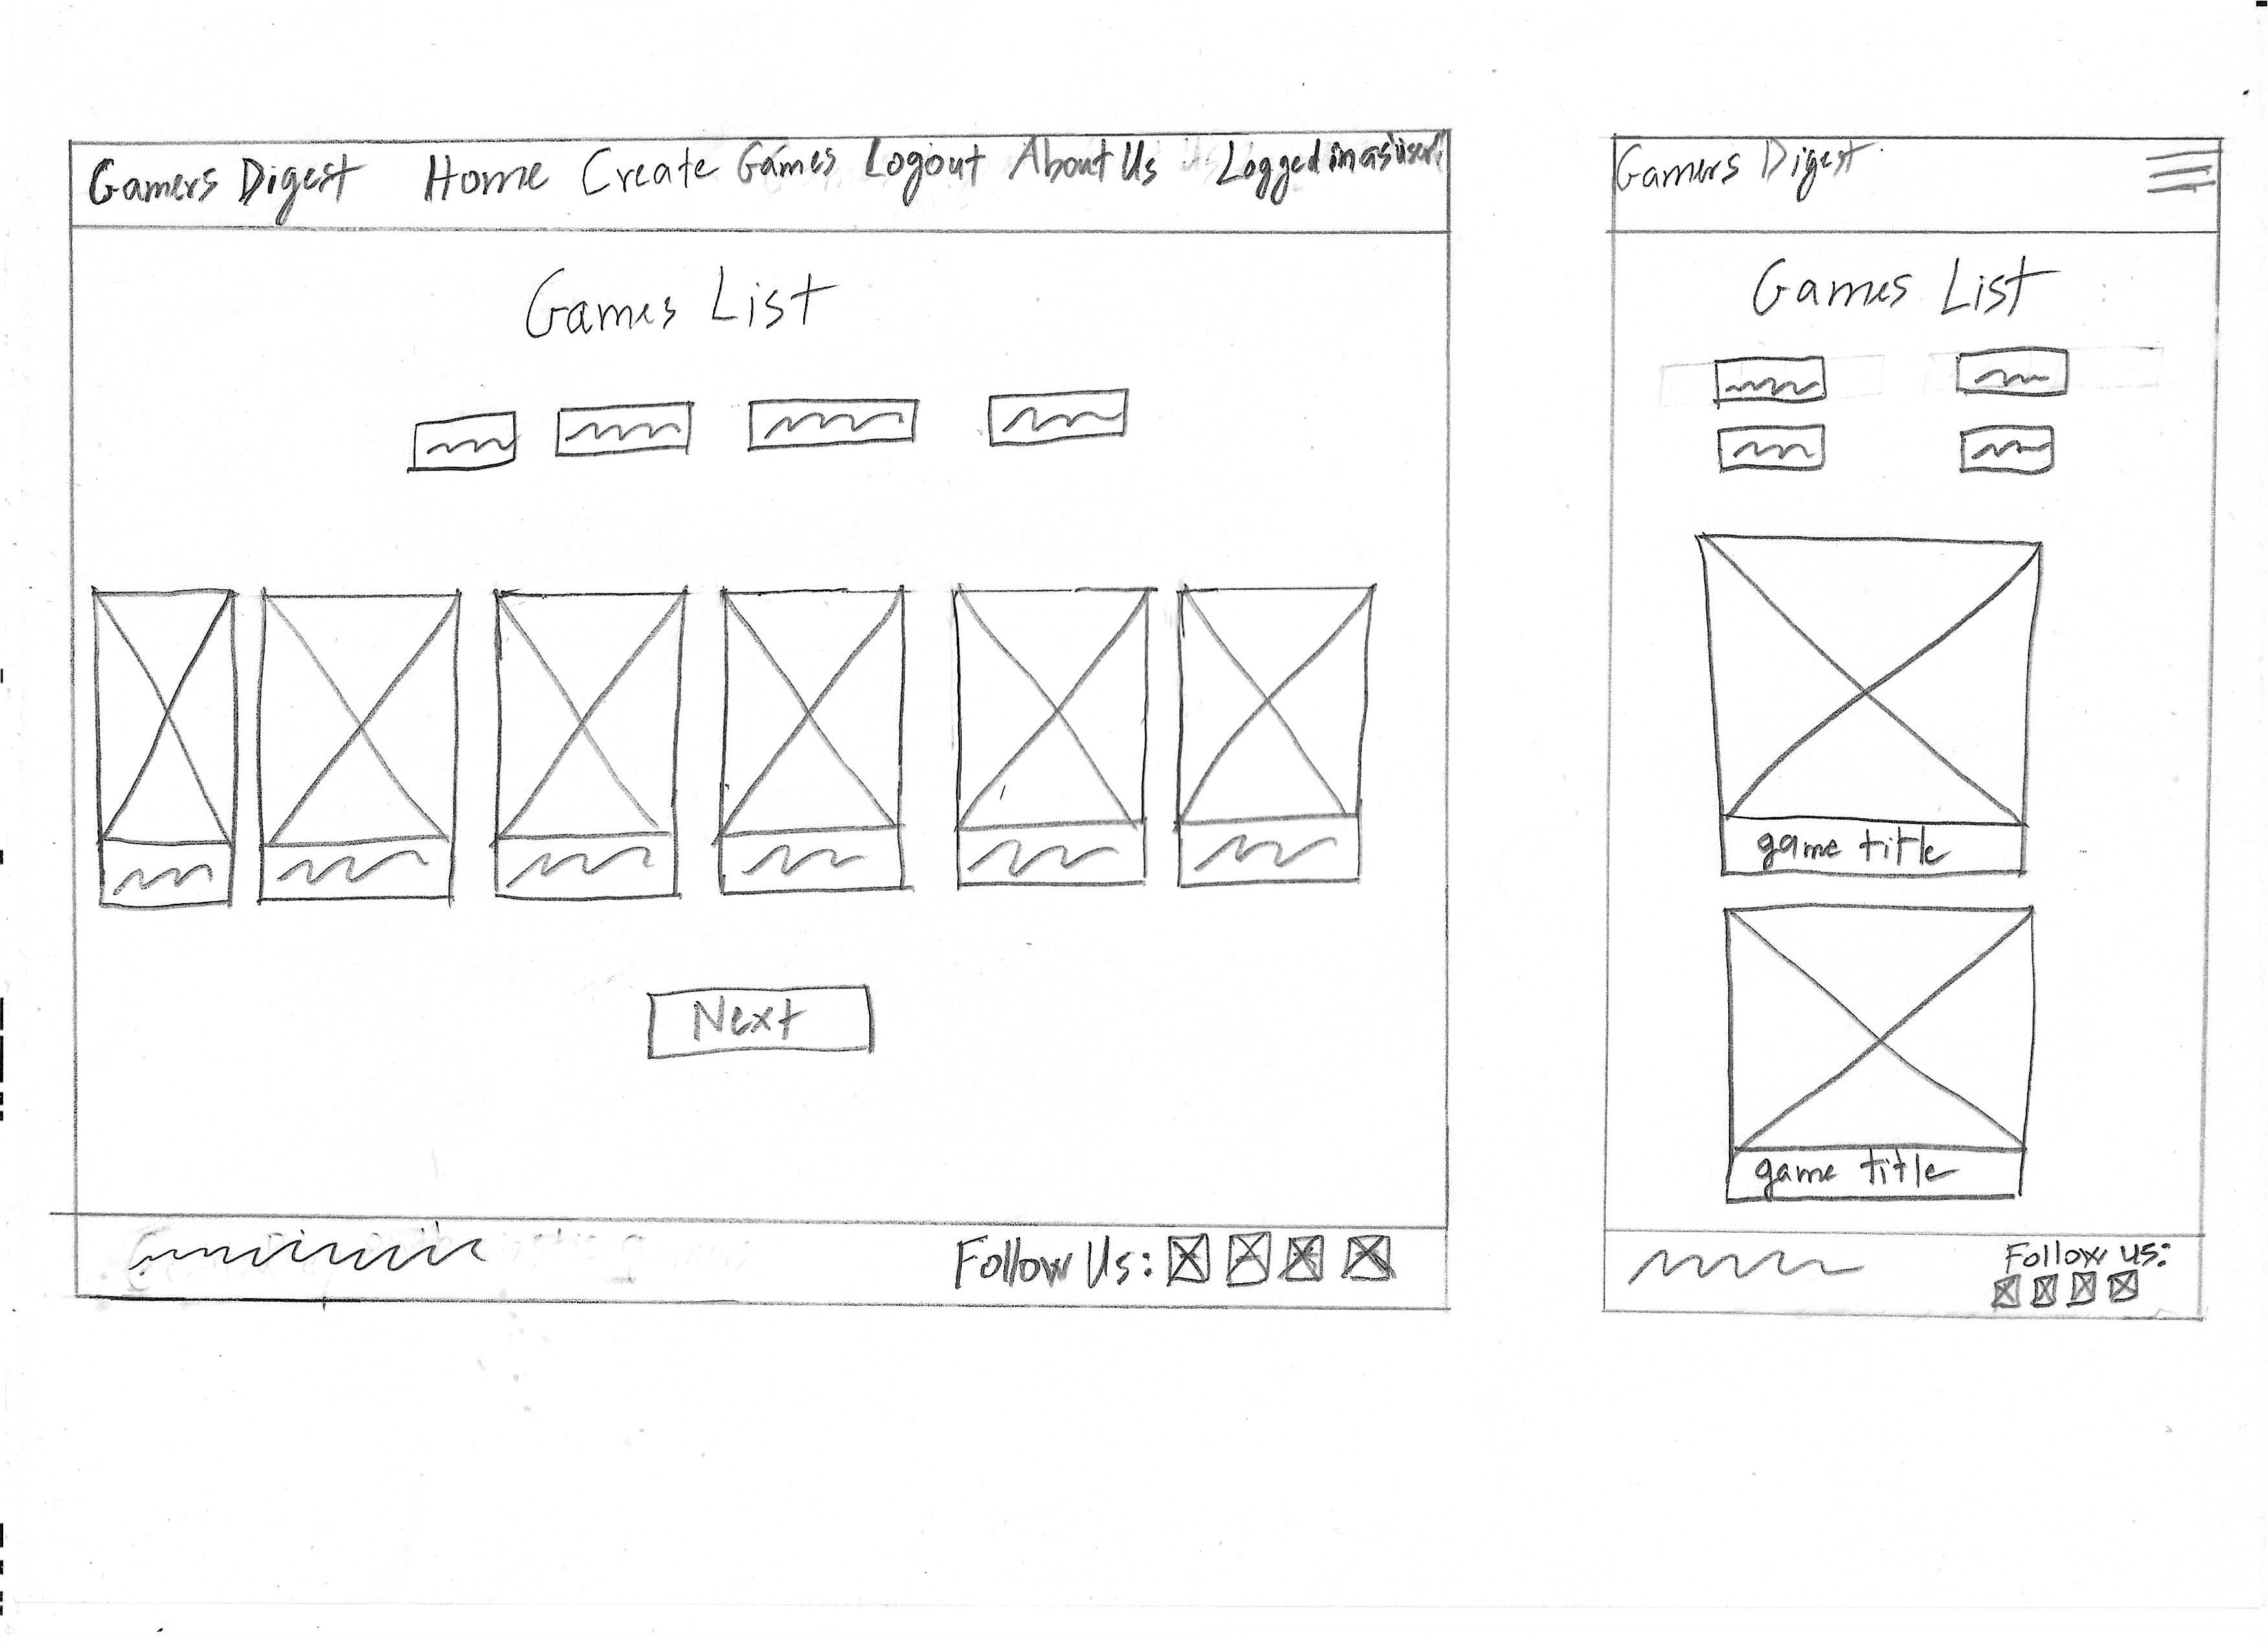 Gamers Digest Home Create Games Logout About Us Logged in as "user"
Games List
Next
Follow Us:
Gamers Digest
Games List
game title
game title
Follow us: